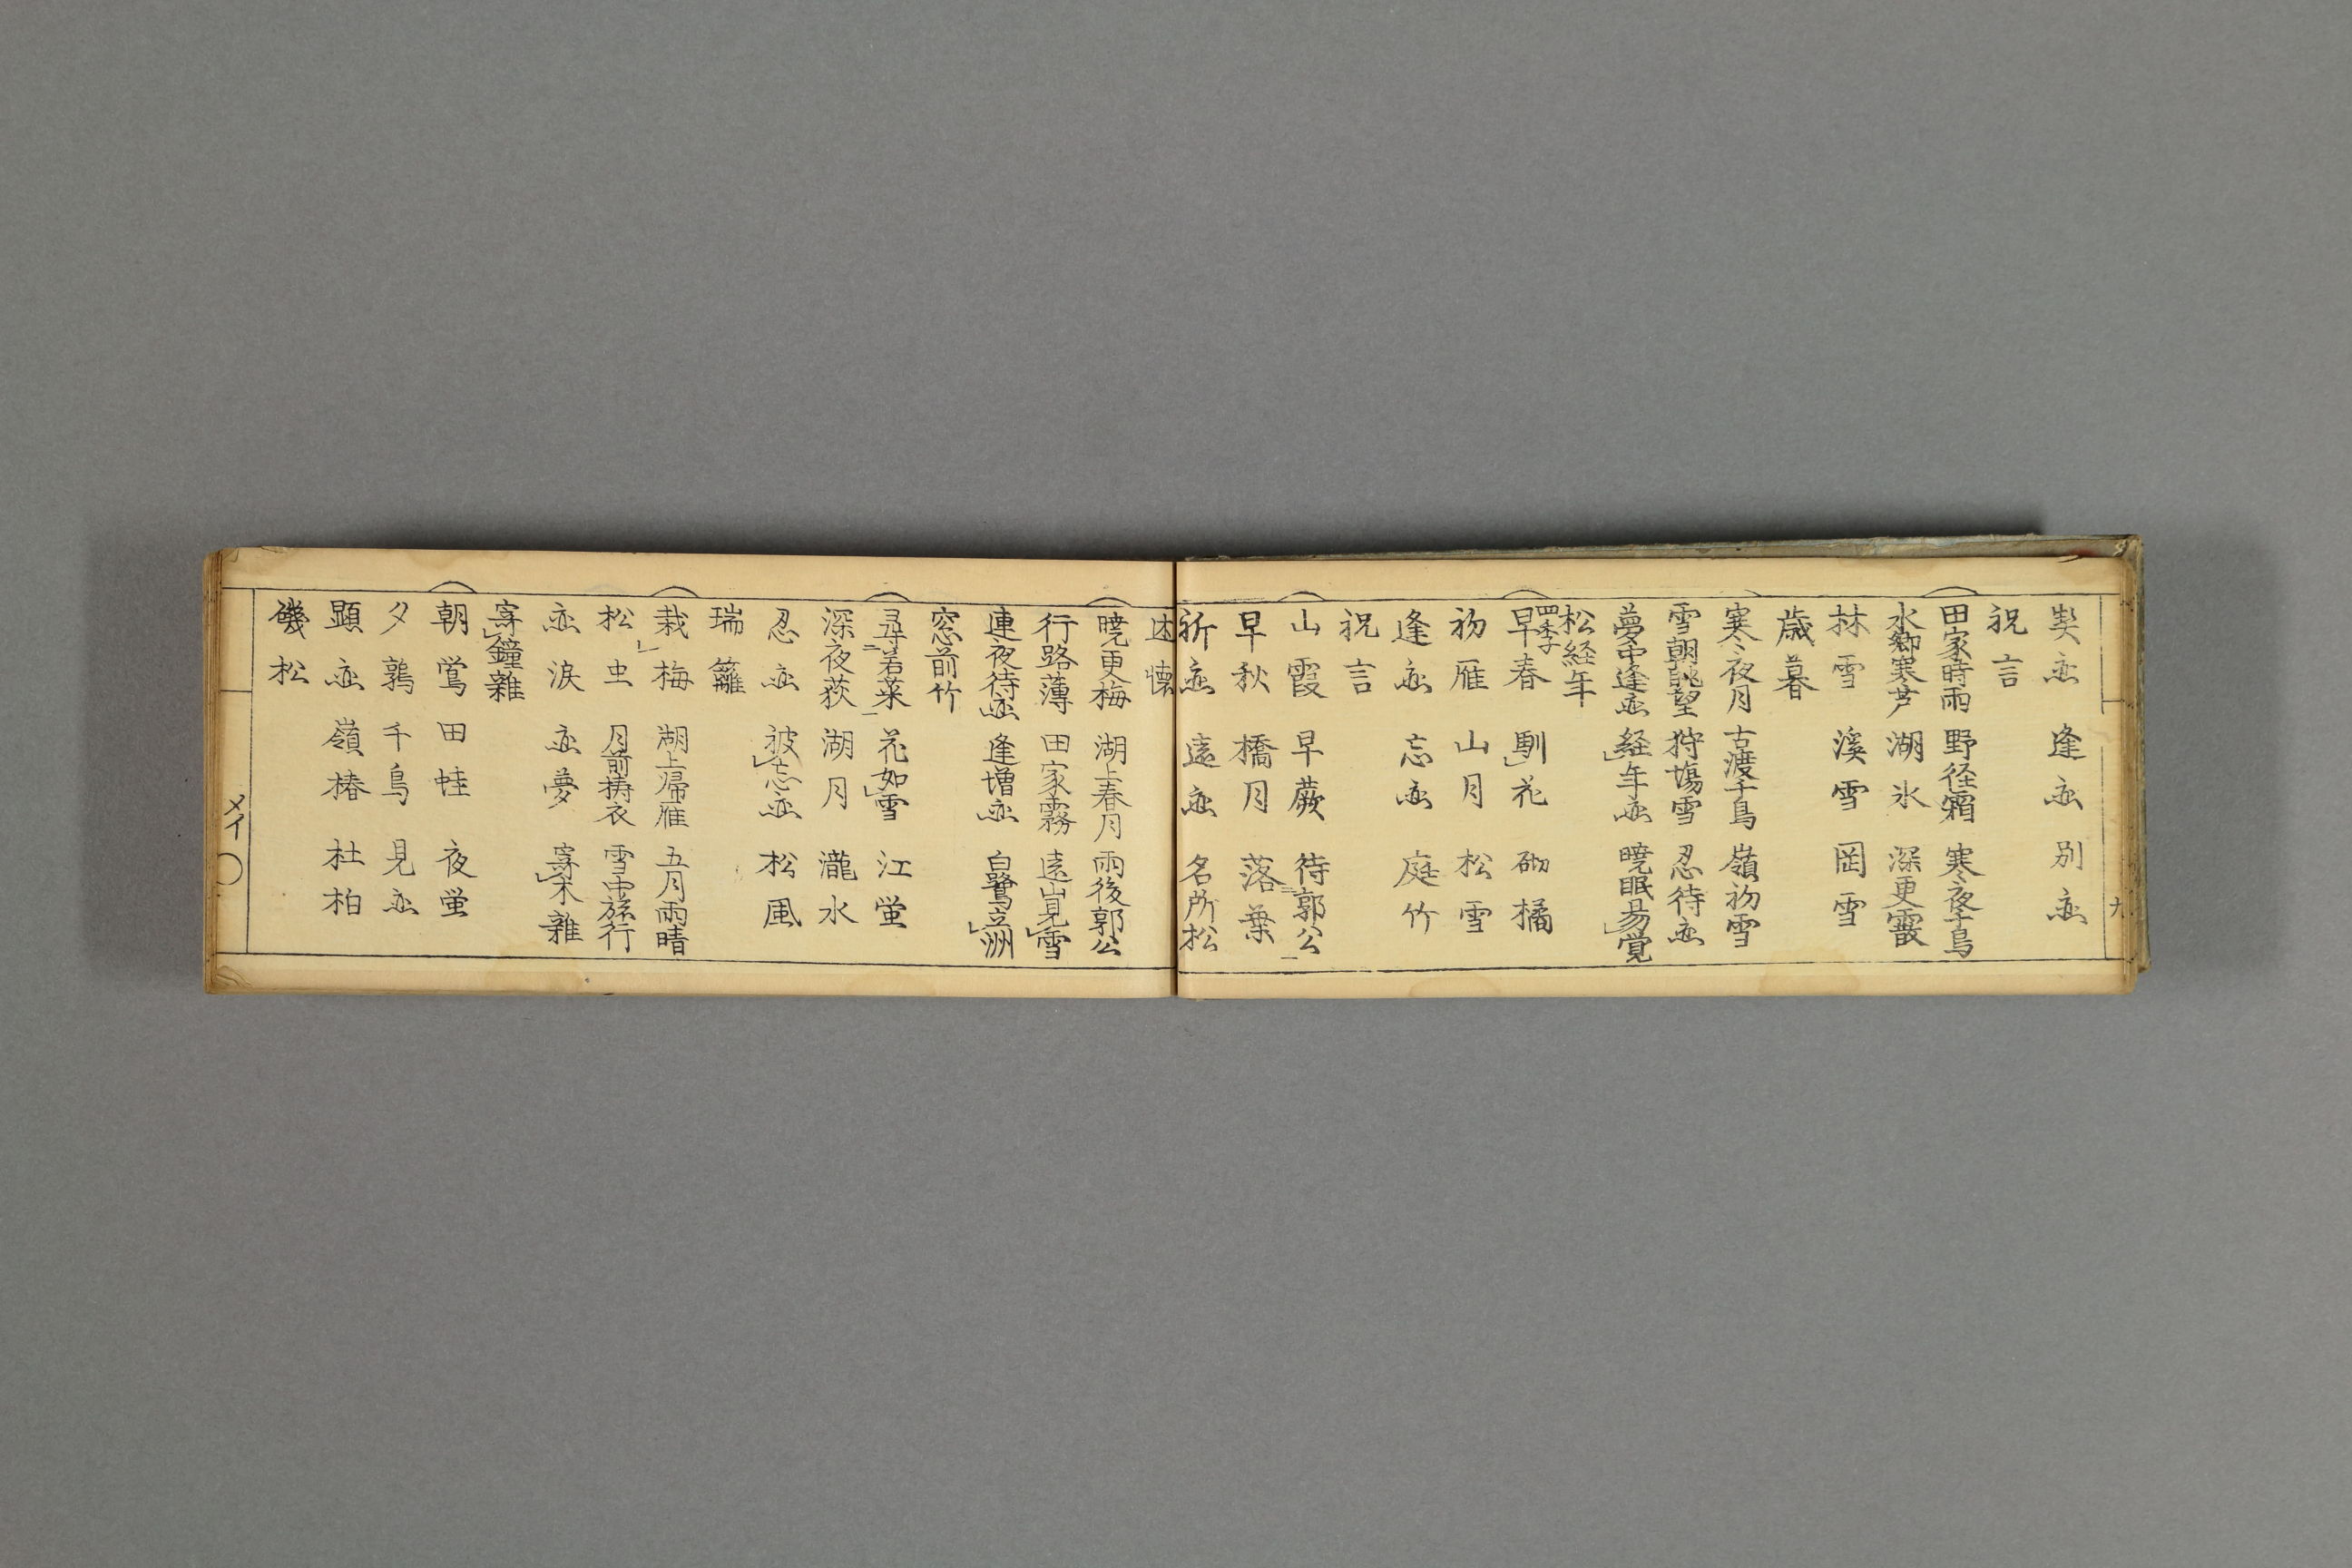 契恋 逢恋 別恋
祝言
田家時雨 野径霜 寒夜千鳥
水郷寒芦 湖氷 深更霰
林雪 渓雪 岡雪
歳暮
寒夜月 古渡千鳥 嶺初雪
雪朝眺望 狩場雪 忍待恋
夢中逢恋 経年恋 暁眠易覚
松経年
四季
早春 馴花 砌橘
初雁 山月 松雪
逢恋 忘恋 庭竹
祝言
山霞 早蕨 待郭公
早秋 橋月 落葉
祈恋 遠恋 名所松
述懐
暁更梅 湖上春月 雨後郭公
行路薄 田家霧 遠山見雪
連夜待恋 逢増恋 白鷺立洲
窓前竹
尋若菜 花如雪 江蛍
深夜荻 湖月 瀧水
忍恋 被忘恋 松風
瑞籬
栽梅 湖上帰雁 五月雨晴
松虫 月前擣衣 雪中旅行
恋涙 恋夢 寄木雑
寄鐘雑
朝鶯 田蛙 夜蛍
夕鶉 千鳥 見恋
顕恋 嶺椿 杜柏
磯松
メイ〇
九